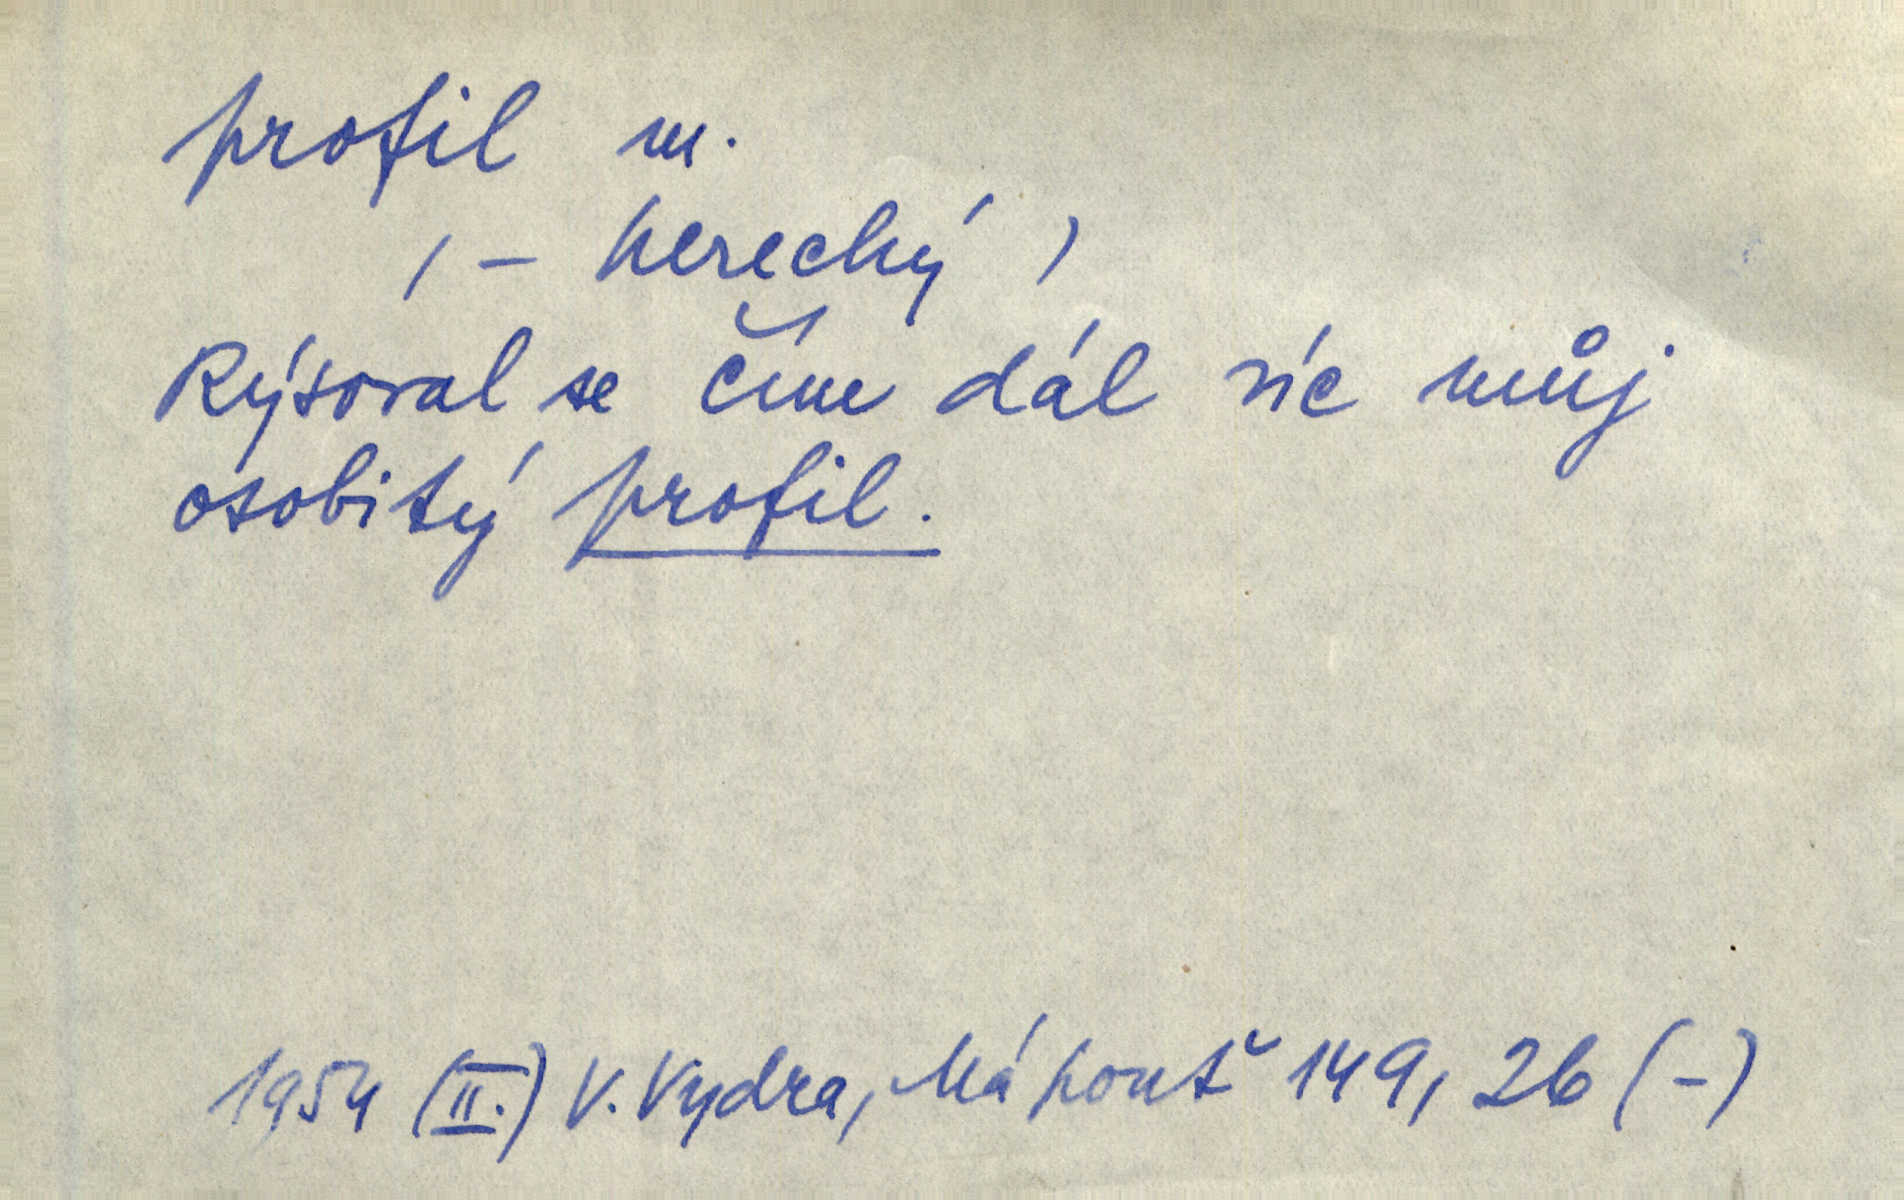 profil m.
(- herecký)
Rýsoval se čím dál víc můj
osobitý profil.
1954 (II.) V. Vydra, Má pouť 149, 26 (-)